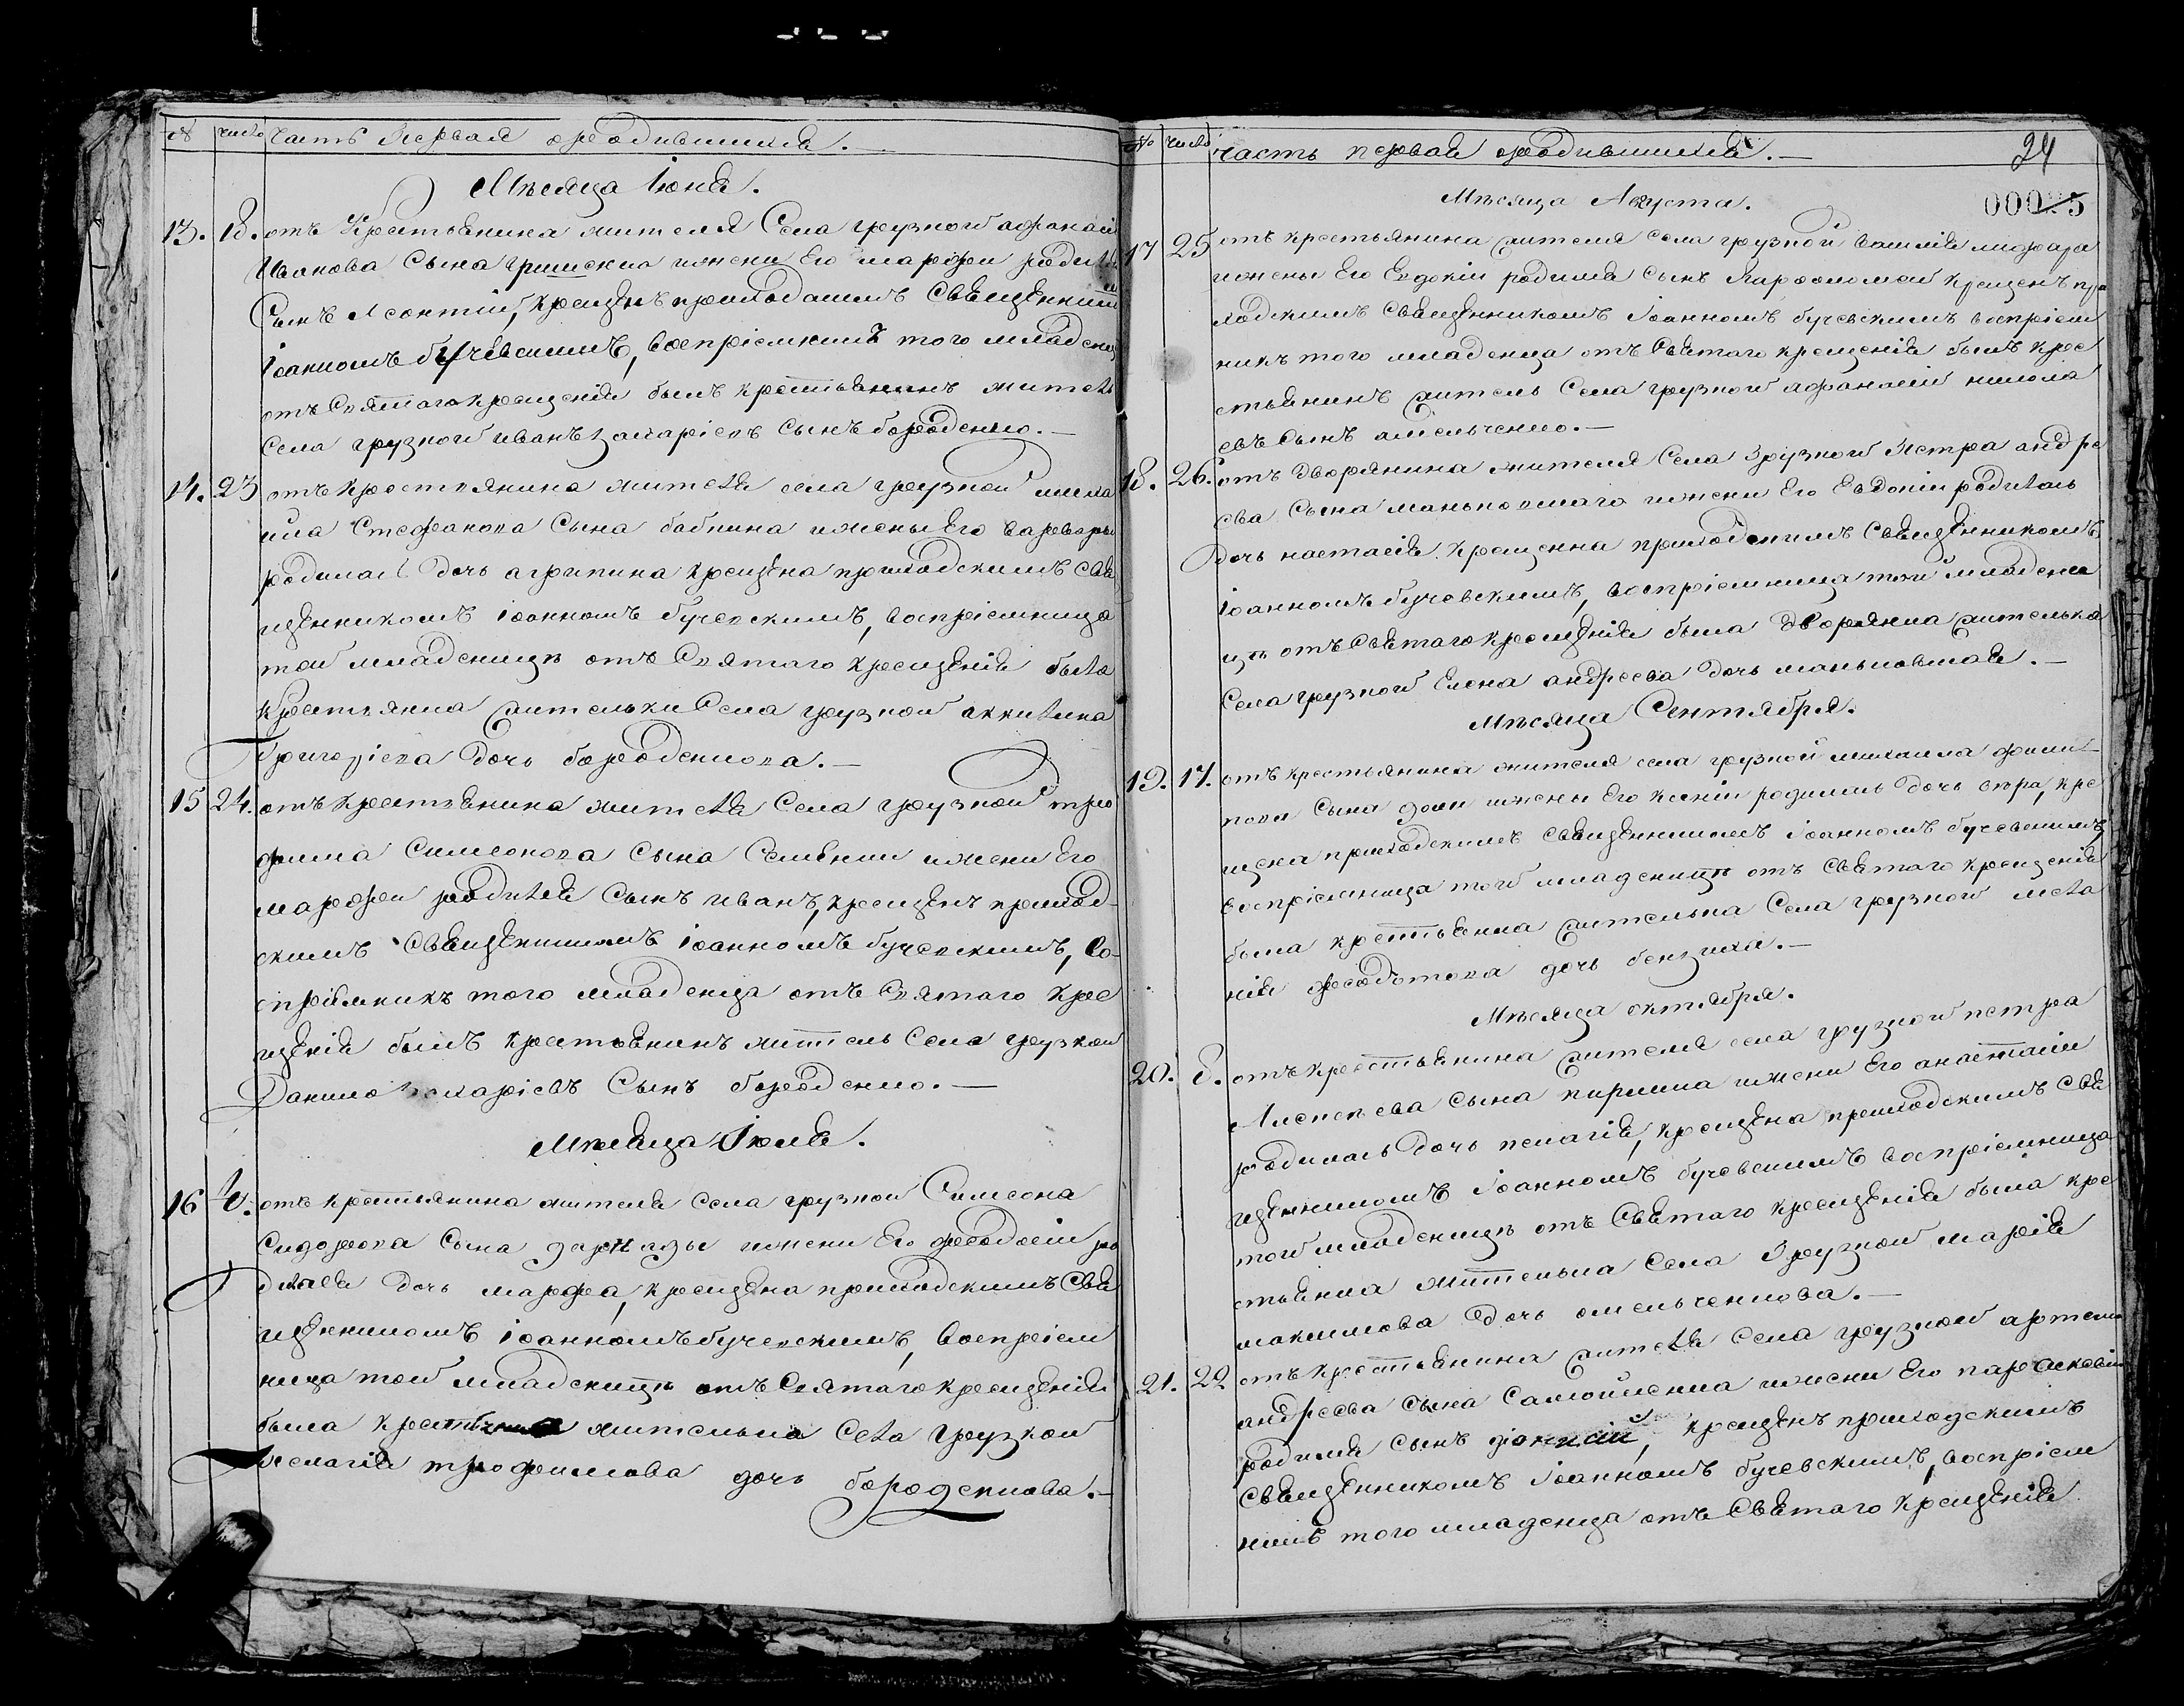 № число Часть Первая о родившихся.
Месяца Іюня.
13. 18. отъ Крестьянина жителя Села грузкой афанасія
Иванова Сына гришенка и жены Его марфы родился
Сынъ Леонтий, крещенъ приходскимъ Священникомъ
Іоанномъ бучевскимъ, воспріемникъ того младенца
отъ Святаго крещенія былъ крестьянинъ житель
Села грузкой иванъ захаріевъ Сынъ бороденко.
14. 23 отъ крестьянина жителя села грузкой миха
ила Стефанова Сына бабкина и жены Его варвары
родилась Дочь агрипина крещена приходскимъ Свя
щенникомъ іоанномъ бучевскимъ, воспріемница
той младеницы отъ Святаго крещенія была
Крестьянка жителька Села грузкой акилина
Григоріева Дочь бороденкова.
15 24. отъ крестьянина жителя Села грузкой тро
фима Симеонова Сына Семенки и жены Его
марфы родился Сынъ иванъ, крещенъ приход-
скимъ Священникомъ іоанномъ бучевскимъ, во-
спріемникъ того младенца отъ Святаго крес
щенія былъ крестьянинъ житель Села грузкой
Данило захаріевъ Сынъ бороденко.
Месяца Іюля.
16 отъ крестьянина жителя Села грузкой Симеона
Сидорова Сына и жены Его феодосіи ро
дилась Дочь марфа, крещена приходскимъ Свя
щенникомъ іоанномъ бучевскимъ, воспріем
ница той младеницы отъ Святаго крещенія
была крестьянка жителька Села грузкой
пелагія трофимова дочь бороденкова.
№ число часть первая о родившихся. 24
000 5
Месяца Августа.
17 25 отъ крестьянина жителя села грузкой василія
и жены Его Евдокіи родился Сынъ Варфоломей крещенъ при
ходскимъ Священникомъ Іоанномъ бучевскимъ воспріем
никъ того младенца отъ Святаго крещенія былъ кре
стьянинъ житель Села грузкой афанасій никола
евъ Сынъ амельченко.
18. 26. отъ Дворянина жителя Села Грузкой Петра андре
ева Сына маньковскаго и жены Его Евдокіи родилась
Дочь настасія крещенна приходскимъ Священникомъ
Іоанномъ бучевскимъ, воспріемница той младени
цы отъ Святаго крещенія была Дворянка жителька
Села грузкой Елена андреева Дочь маньковская.
Месяца Сентября.
19. 17. отъ крестьянина жителя села грузкой михаила фили-
пова Сына и жены Его ксеніи родилась Дочь вѣра, кре
щена приходскимъ Священникомъ Іоанномъ бучевскимъ
воспріемница той младеницы отъ Святаго крещенія
была крестьянка жителька Села грузкой мела
нія феодотова дочь
Месяца октября.
20. 8. отъ крестьянина жителя села грузкой петра
Алексеева Сына и жены Его анастасіи
родилась Дочь пелагія, крещена приходскимъ Свя
щенникомъ Іоанномъ бучевскимъ воспріемница
той младеницы отъ Святаго крещенія была кре
стьянка жителька Села Грузкой марія
максимова Дочь омельченкова.
21. 22 отъ крестьянина жителя Села грузкой артема
андреева Сына Самойленка и жены Его параскевіи
родился Сынъ діонисій, крещенъ приходскимъ
Священникомъ Іоанномъ бучевскимъ, воспріем
никъ того младенца отъ Святаго крещенія